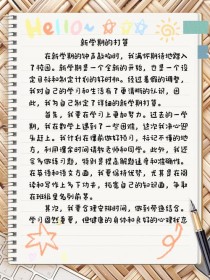 Hello~
新学期的打算
在新学期的钟声敲响时，我满怀期待地踏入
了校园。新学期是一个全新的开始，也是一个设
定目标和制定计划的好时机。经过暑假的调整，
我对自己的学习和生活有了更清晰的认识，因
此，我为自己制定了详细的新学期打算。
首先，我要在学习上更加努力。过去的一学
期，我在数学上遇到了一些困难，这次我决心迎
头赶上。我计划在课前做好预习，标记不懂的地
方，利用课堂时间请教老师和同学。此外，我还
会多做练习题，特别是提高解题速度和准确性。
在英语和语文方面，我要保持优势，尤其是在阅
读和写作上多下功夫，拓宽自己的知识面，争取
在班级里名列前茅。
其次，我要合理安排时间，做到劳逸结合。
学习固然重要，但健康的身体和良好的心理状态